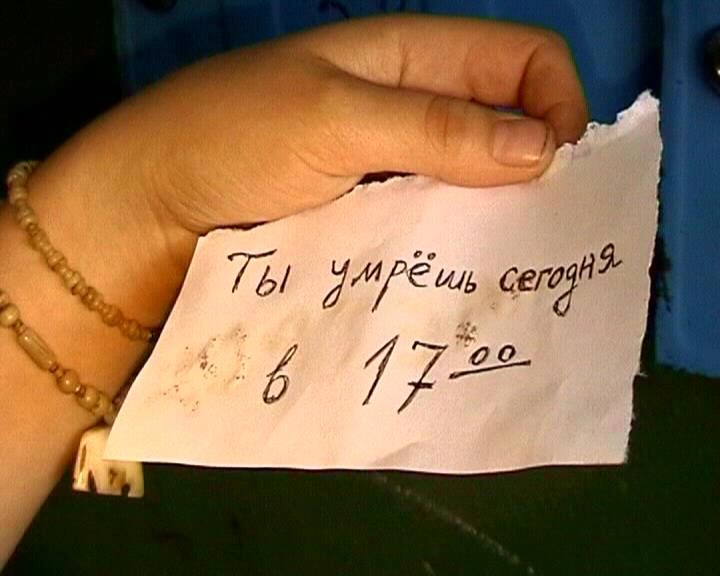 Ты умрёшь сегодня
в 17⁰⁰